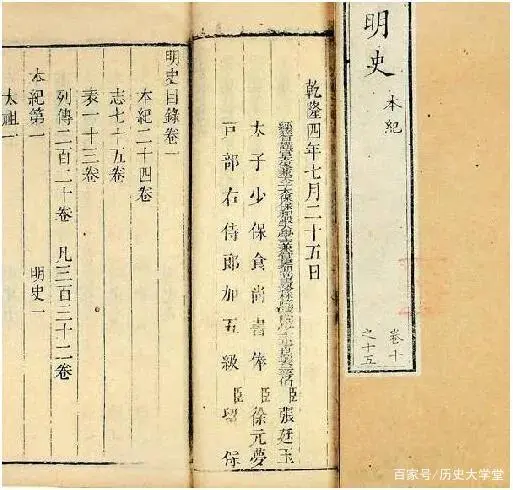 明史 本紀
卷十
之十五
乾隆四年七月二十五日
臣張廷玉
太子少保食尚書俸臣徐元夢
戶部右侍郎加五級臣留保
明史目錄卷一
本紀二十四卷
志七十五卷
表一十三卷
列傳二百二十卷 凡三百三十二卷
本紀第一 明史一
太祖一
百家号/历史大学堂